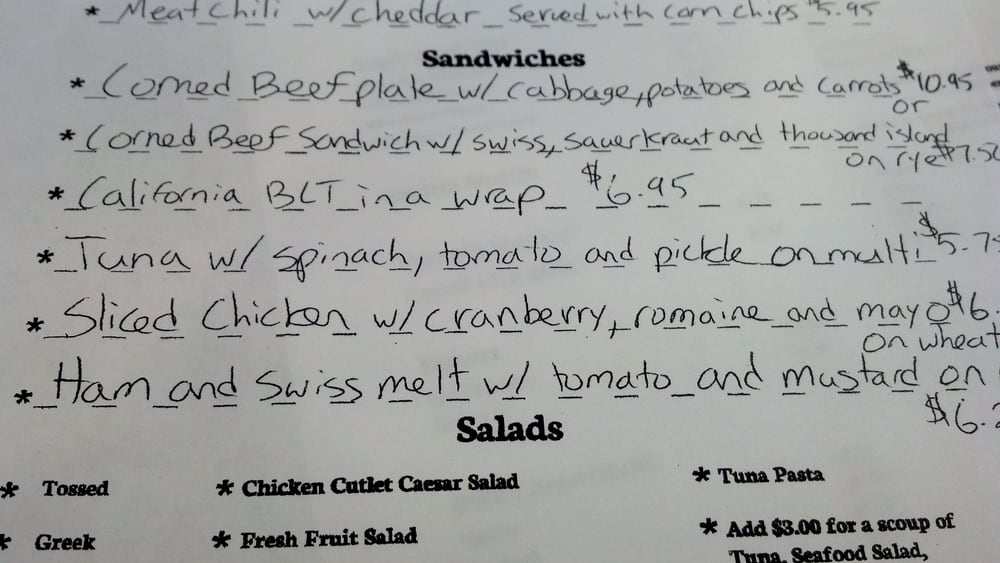 * Meat Chili w/ cheddar served with corn chips 5.95
Sandwiches
* Corned Beef plate w/ cabbage, potatoes and carrots $10.95
or
* Corned Beef Sandwich w/ swiss, sauerkraut and thousand island
on rye $7.50
* California BLT in a wrap $6.95
* Tuna w/ spinach, tomato and pickle on multi $5.75
* Sliced Chicken w/ cranberry, romaine and mayo $6.
on wheat
* Ham and Swiss melt w/ tomato and mustard on
$6.2
Salads
* Tossed * Chicken Cutlet Caesar Salad * Tuna Pasta
* Greek * Fresh Fruit Salad * Add $3.00 for a scoup of
Tuna, Seafood Salad,